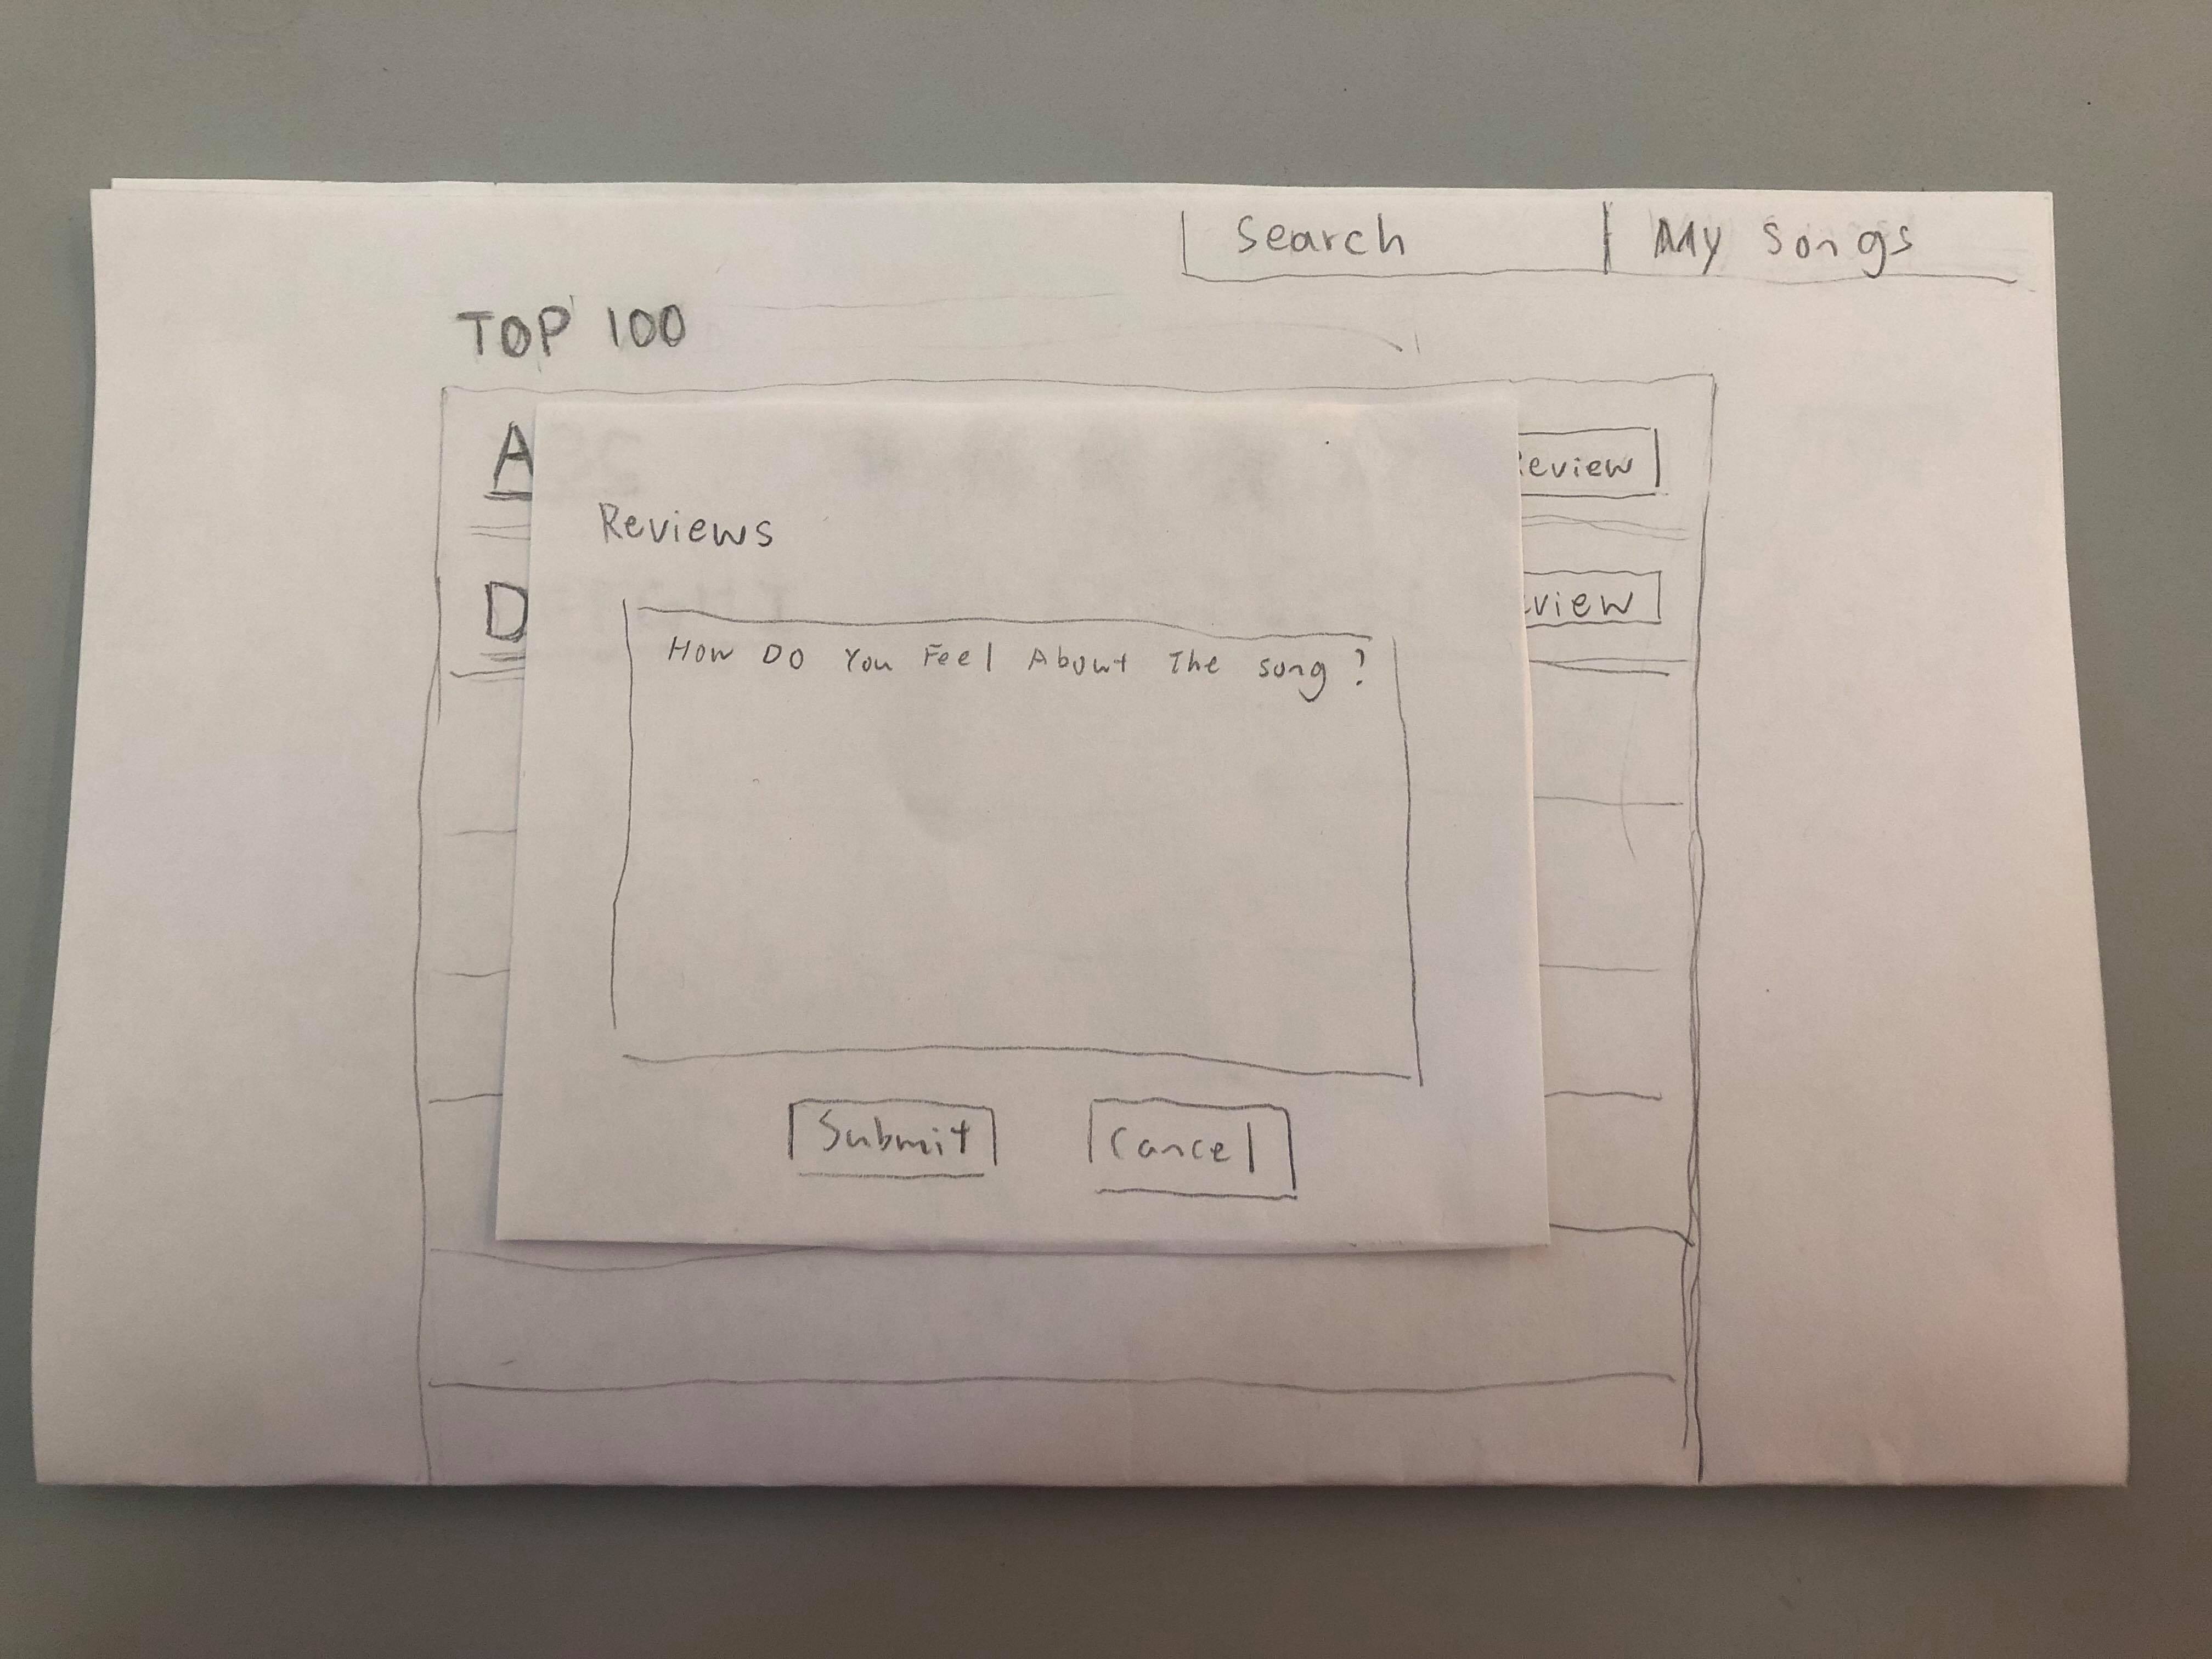 Search My Songs
TOP 100
A
eview
Reviews
D
view
How Do You Feel About The song?
Submit Cancel